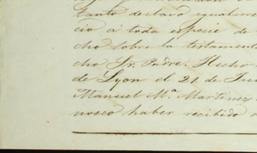 tante declara igualmen
cio á toda especie de
cho sobre la testament
cho Sr. Padre. Hecho
de Lyon el 21. de
Manuel Mª Martinez
haber recibido